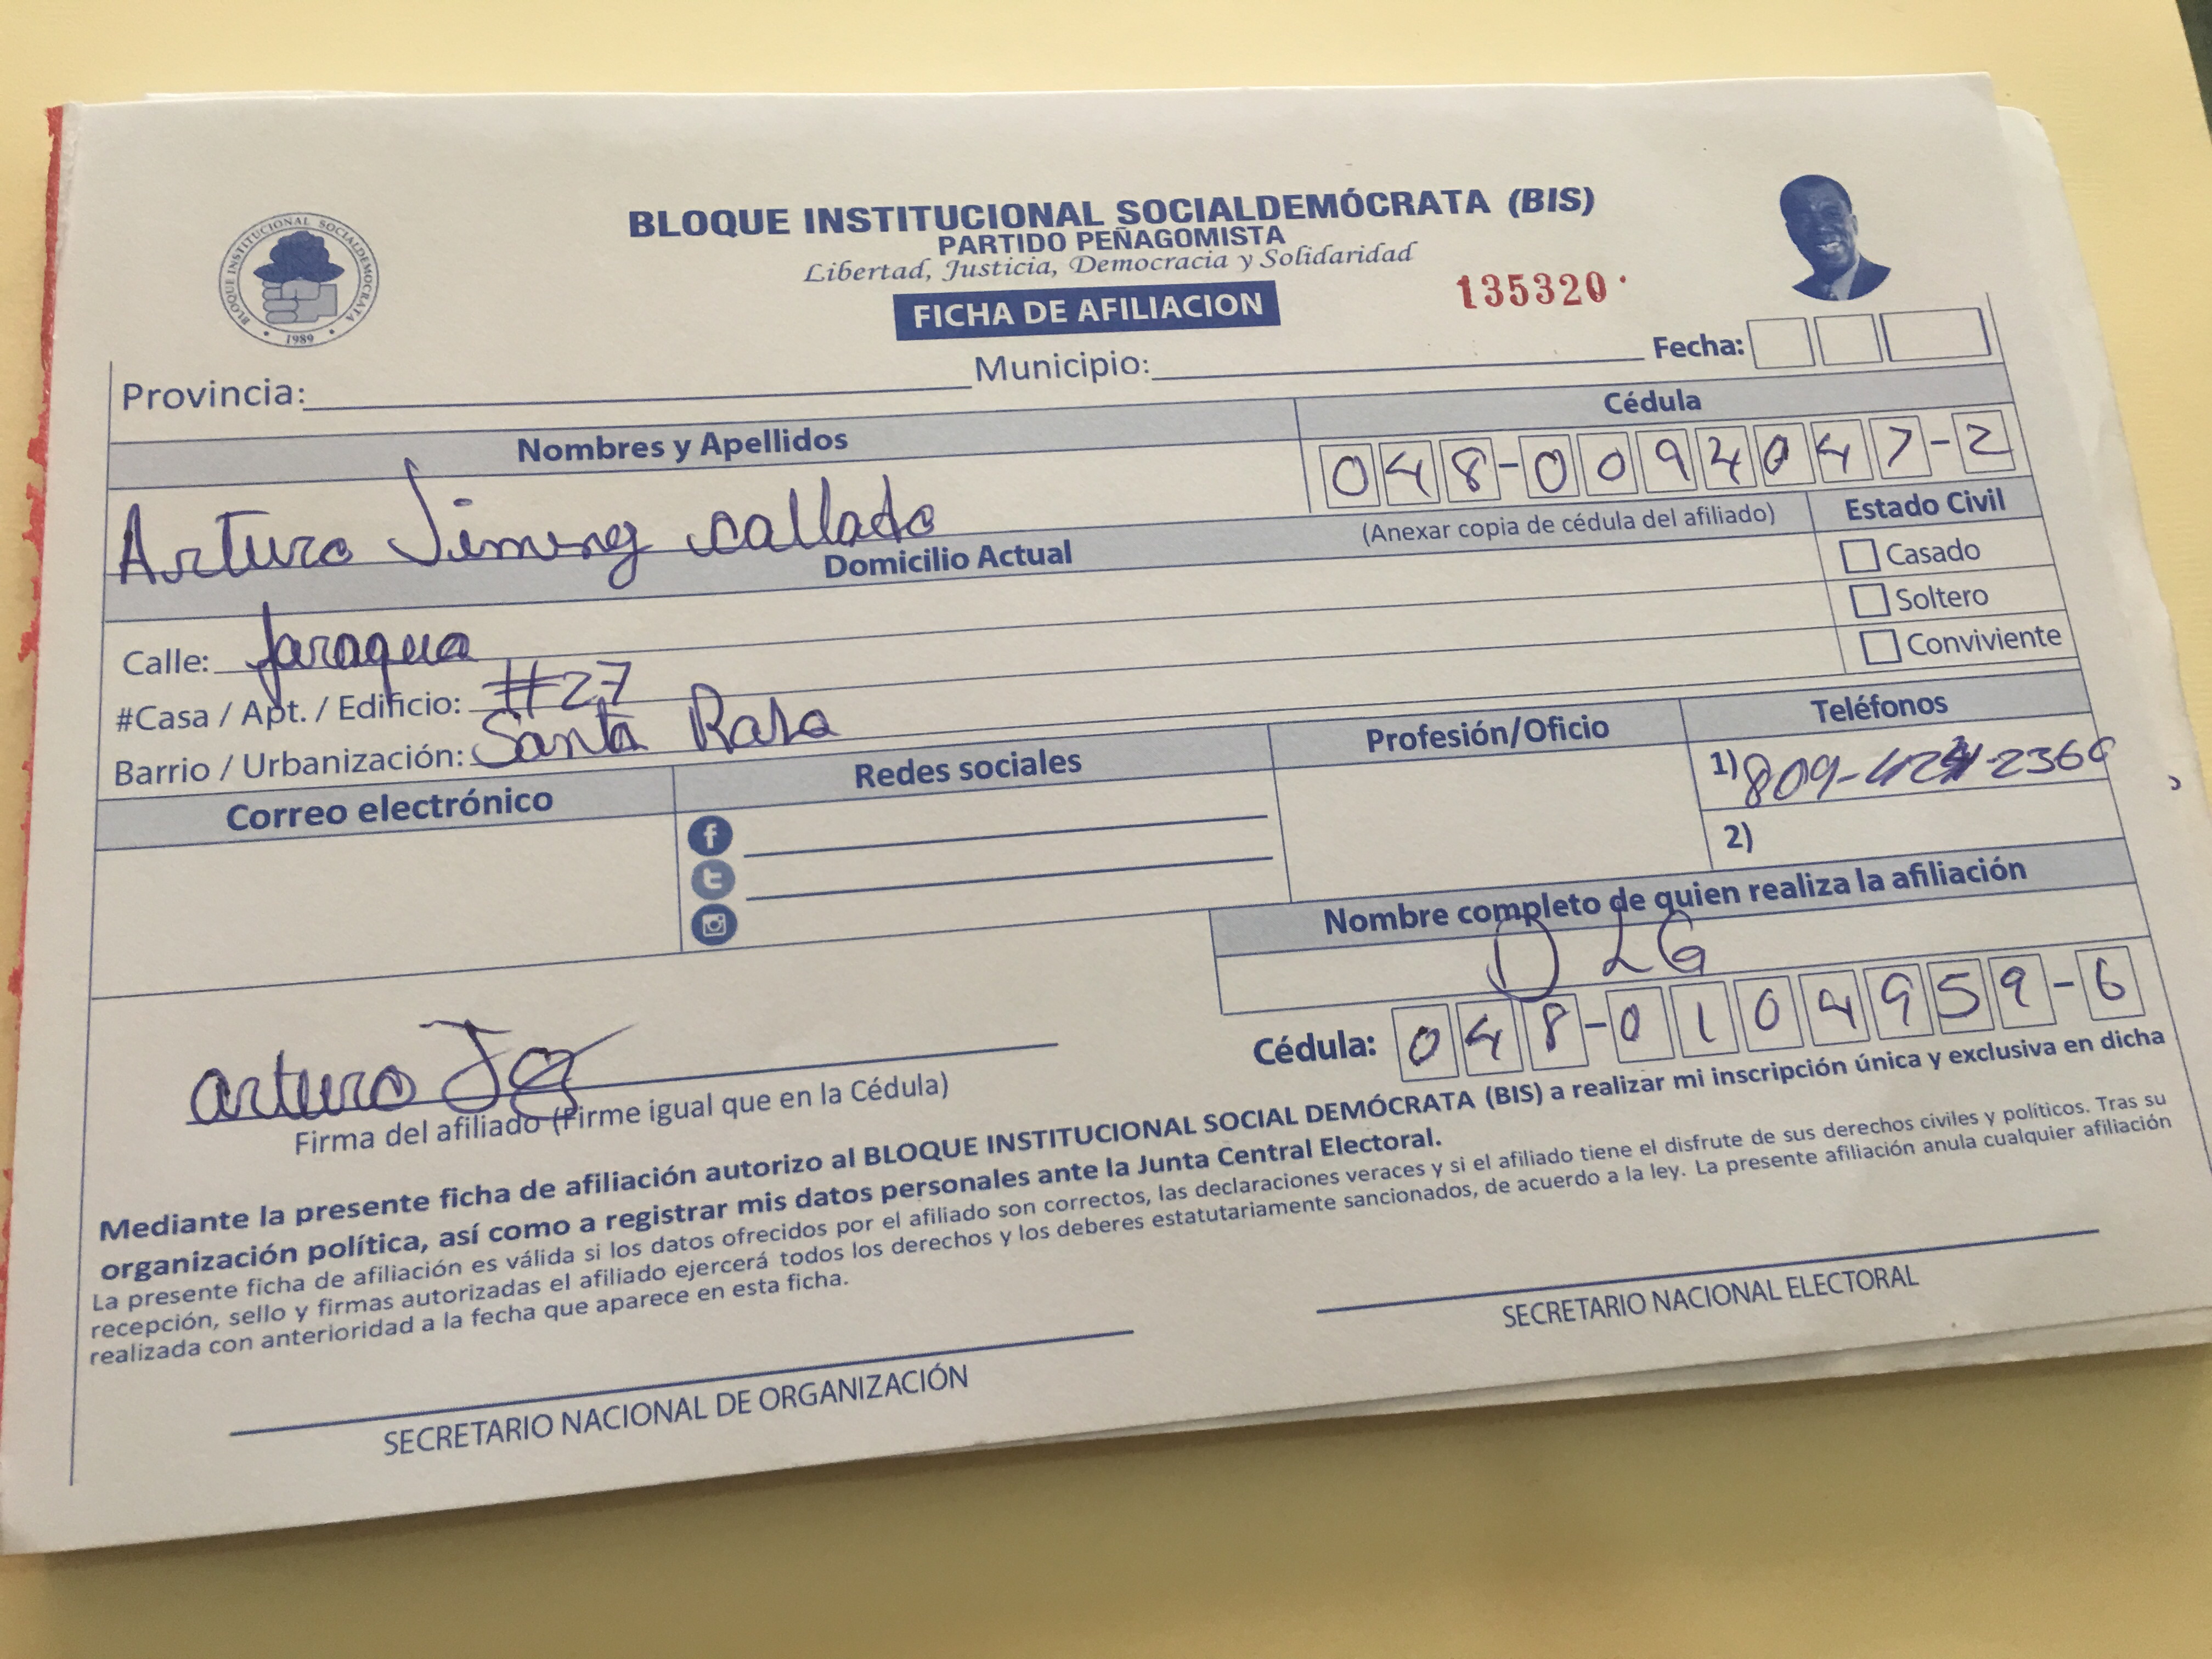 BLOQUE INSTITUCIONAL SOCIALDEMOCRATA
1989
BLOQUE INSTITUCIONAL SOCIALDEMÓCRATA (BIS)
PARTIDO PEÑAGOMISTA
Libertad, Justicia, Democracia y Solidaridad
FICHA DE AFILIACION
135320
Provincia: Municipio: Fecha:
Nombres y Apellidos Cédula
Arturo callado 048-0094047-2
(Anexar copia de cédula del afiliado)
Domicilio Actual
Estado Civil
Casado
Soltero
Conviviente
Calle: Jaragua
#Casa / Apt. / Edificio: #27
Barrio / Urbanización: Santa Rosa
Correo electrónico Redes sociales Profesión/Oficio Teléfonos
1) 809-
2)
Nombre completo de quien realiza la afiliación
D LG
Cédula: 048-0104959-6
arturo
Firma del afiliado (Firme igual que en la Cédula)
Mediante la presente ficha de afiliación autorizo al BLOQUE INSTITUCIONAL SOCIAL DEMÓCRATA (BIS) a realizar mi inscripción única y exclusiva en dicha
organización política, así como a registrar mis datos personales ante la Junta Central Electoral.
La presente ficha de afiliación es válida si los datos ofrecidos por el afiliado son correctos, las declaraciones veraces y si el afiliado tiene el disfrute de sus derechos civiles y políticos. Tras su
recepción, sello y firmas autorizadas el afiliado ejercerá todos los derechos y los deberes estatutariamente sancionados, de acuerdo a la ley. La presente afiliación anula cualquier afiliación
realizada con anterioridad a la fecha que aparece en esta ficha.
SECRETARIO NACIONAL DE ORGANIZACIÓN
SECRETARIO NACIONAL ELECTORAL